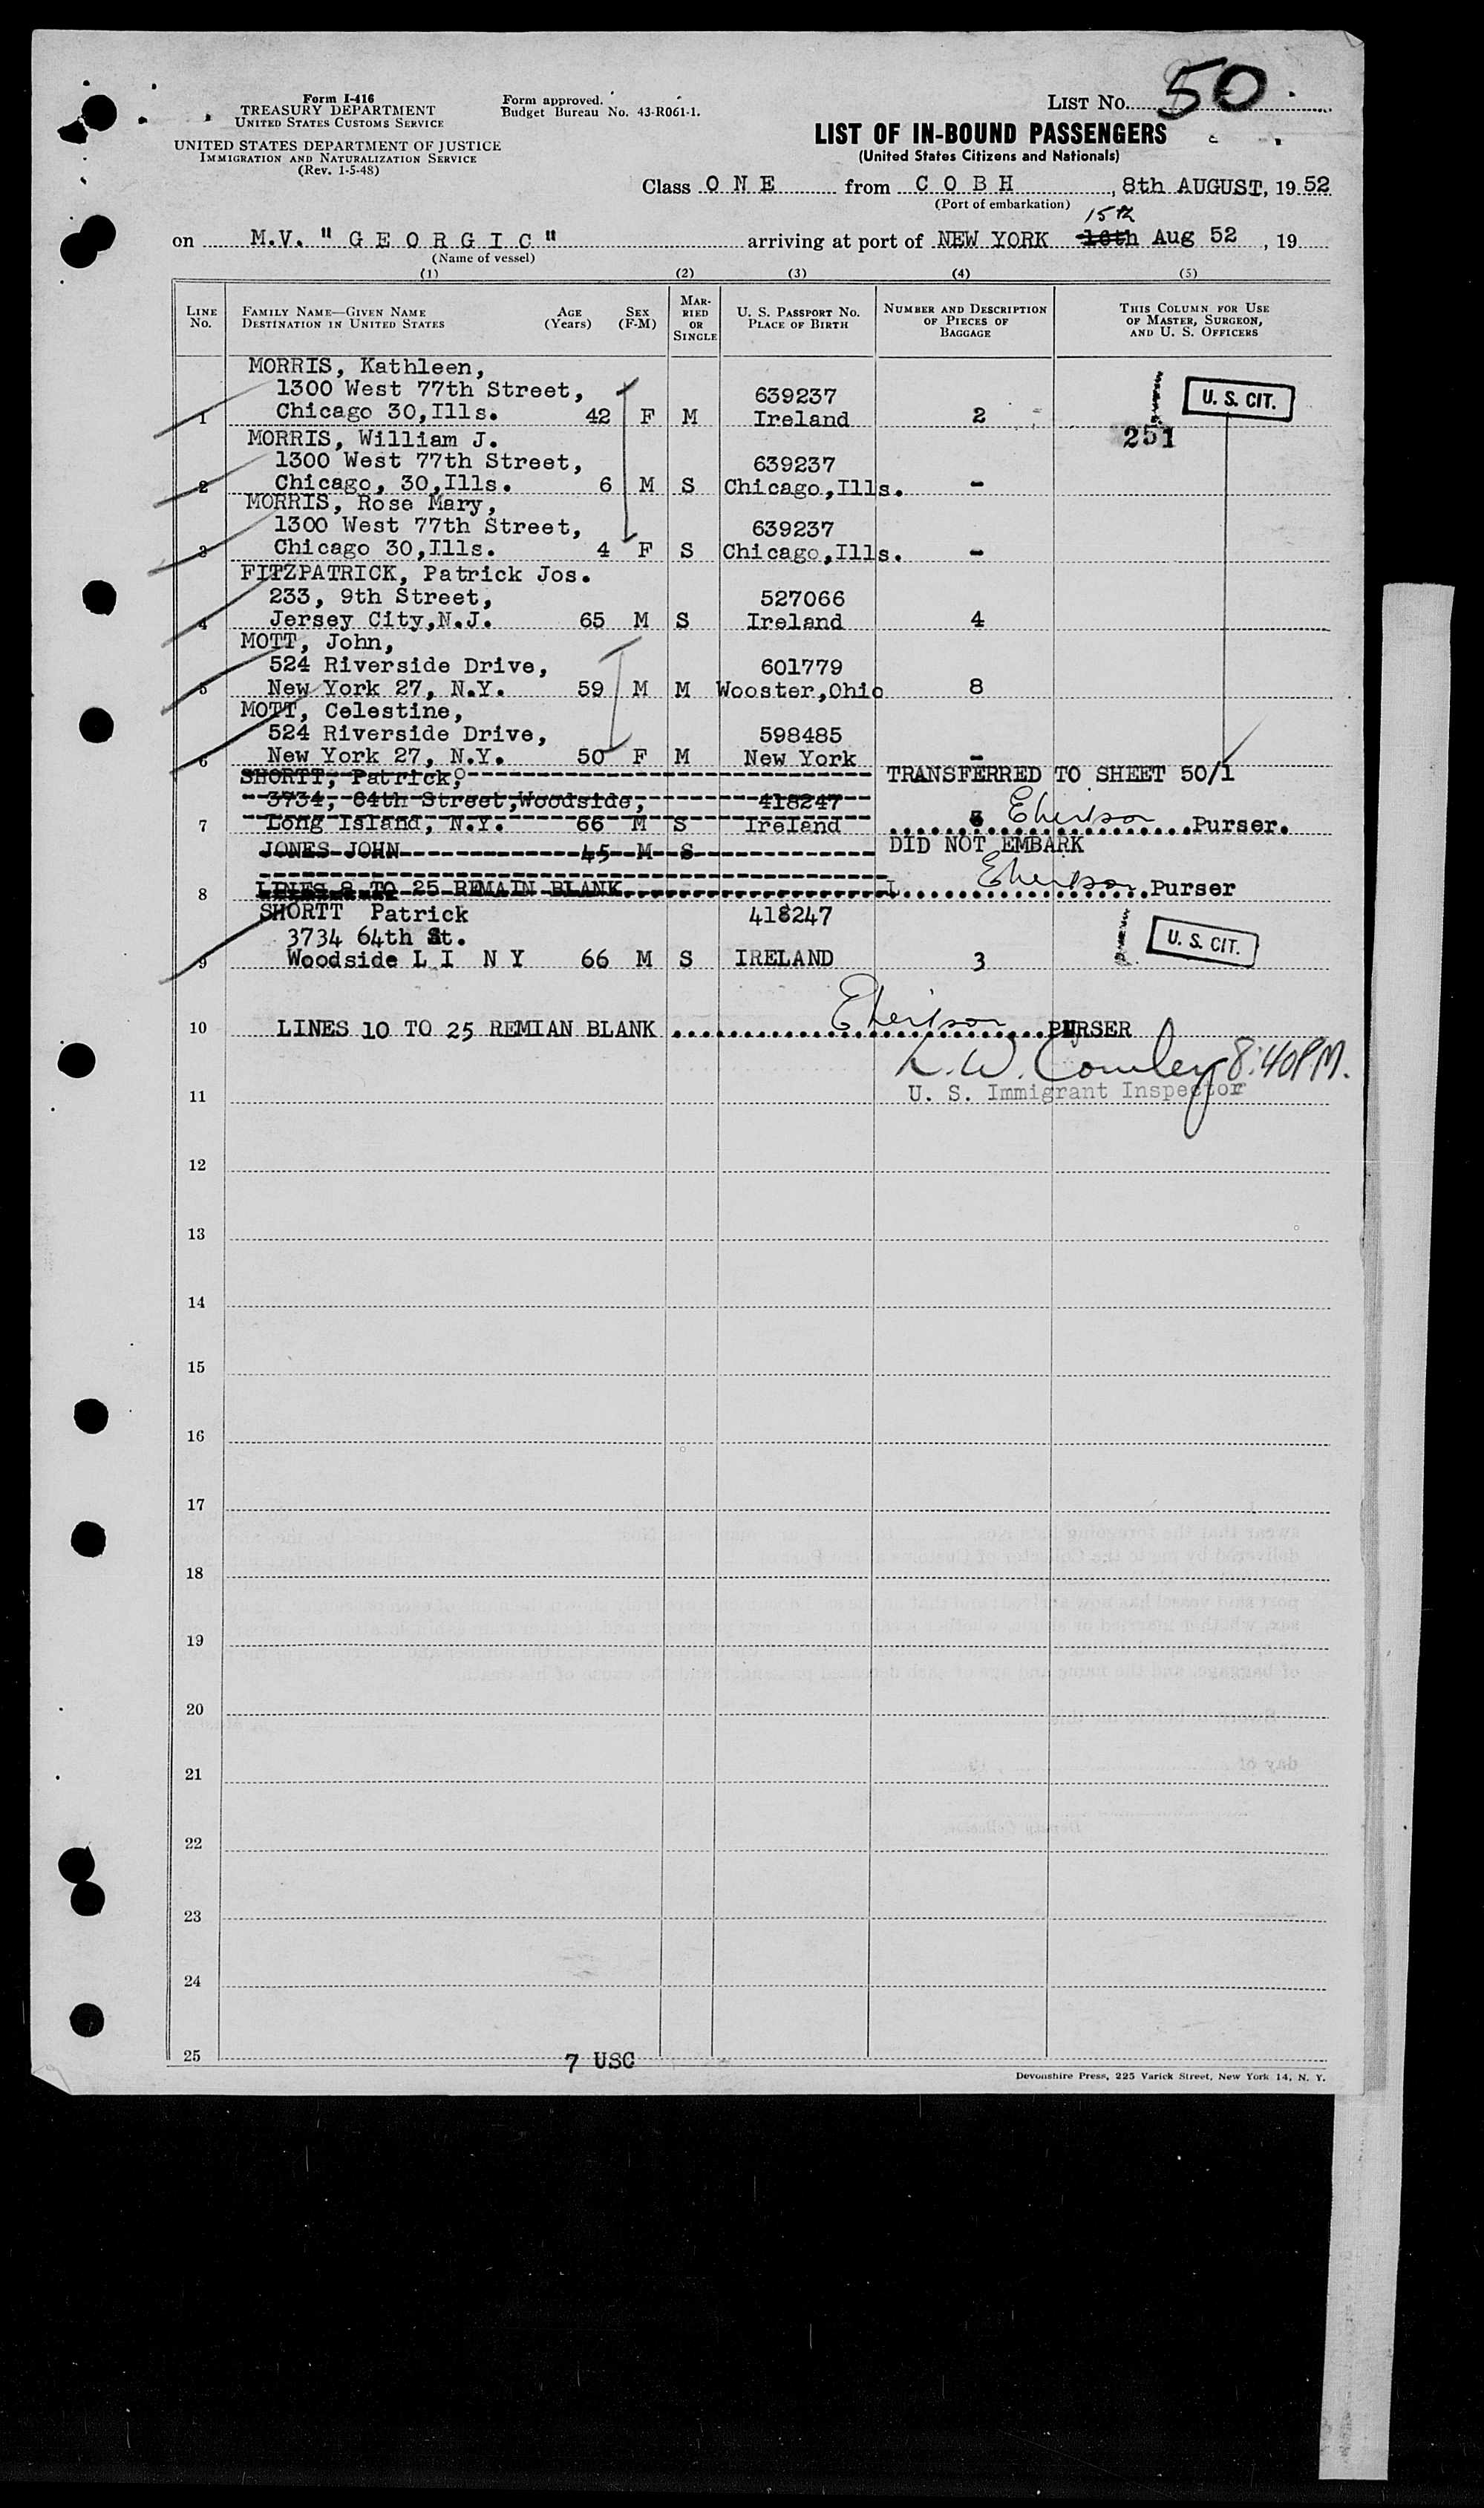 Form I-416
TREASURY DEPARTMENT
UNITED STATES CUSTOMS SERVICE
UNITED STATES DEPARTMENT OF JUSTICE
IMMIGRATION AND NATURALIZATION SERVICE
(Rev. 1-5-48)
Form approved.
Budget Bureau No. 43-R061-1.
LIST No. 50
LIST OF IN-BOUND PASSENGERS
(United States Citizens and Nationals)
Class O N E from C O B H, 8th AUGUST, 19 52
(Port of embarkation)
15th
on M.V. "G E O R G I C" arriving at port of NEW YORK 16th Aug 52, 19
(Name of vessel)
(1) (2) (3) (4) (5)
LINE No. FAMILY NAME—GIVEN NAME DESTINATION IN UNITED STATES AGE (Years) SEX (F-M) MARRIED OR SINGLE U. S. PASSPORT No. PLACE OF BIRTH NUMBER AND DESCRIPTION OF PIECES OF BAGGAGE THIS COLUMN FOR USE OF MASTER, SURGEON, AND U. S. OFFICERS
MORRIS, Kathleen,
1300 West 77th Street, 639237 U. S. CIT.
1 Chicago 30,Ills. 42 F M Ireland 2
MORRIS, William J. 251
1300 West 77th Street, 639237
2 Chicago, 30,Ills. 6 M S Chicago,Ills. -
MORRIS, Rose Mary,
1300 West 77th Street, 639237
3 Chicago 30,Ills. 4 F S Chicago,Ills. -
FITZPATRICK, Patrick Jos.
233, 9th Street, 527066
4 Jersey City,N.J. 65 M S Ireland 4
MOTT, John,
524 Riverside Drive, 601779
5 New York 27, N.Y. 59 M M Wooster,Ohio 8
MOTT, Celestine,
524 Riverside Drive, 598485
6 New York 27, N.Y. 50 F M New York -
SHORTT, Patrick, TRANSFERRED TO SHEET 50/1
3734, 64th Street,Woodside, 418247
7 Long Island, N.Y. 66 M S Ireland Purser.
JONES JOHN 45 M S DID NOT EMBARK
8 LINES 8 TO 25 REMAIN BLANK Purser
SHORTT Patrick 418247
3734 64th St. U. S. CIT.
9 Woodside L I N Y 66 M S IRELAND 3
10 LINES 10 TO 25 REMIAN BLANK PURSER
8:40PM.
11 U. S. Immigrant Inspector
12
13
14
15
16
17
18
19
20
21
22
23
24
25 7 USC
Devonshire Press, 225 Varick Street, New York 14, N. Y.